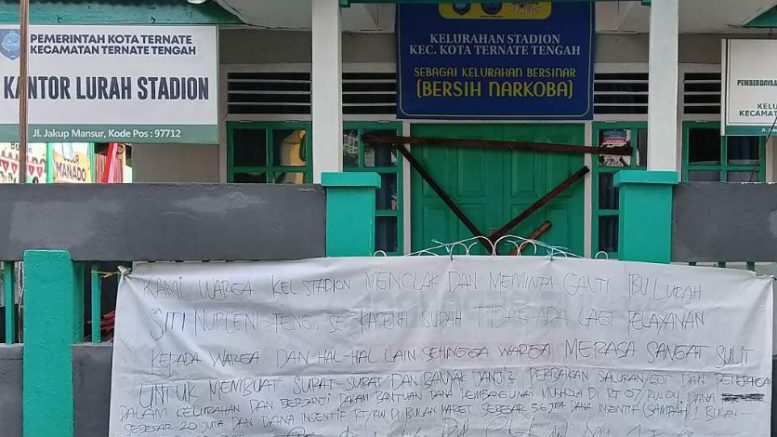 PEMERINTAH KOTA TERNATE
KECAMATAN TERNATE TENGAH
KANTOR LURAH STADION
Jl. Jakup Mansur, Kode Pos : 97712
KELURAHAN STADION
KEC. KOTA TERNATE TENGAH
SEBAGAI KELURAHAN BERSINAR
(BERSIH NARKOBA)
PEMBERDAYA
KELU
KECAMATAN
MANADO
KAMI WARGA KEL STADION MENOLAK DAN MEMINTA GANTI IBU LURAH
SITI NURLEN TENG, SE KARENA SUDAH TIDAK ADA LAGI PELAYANAN
KEPADA WARGA DAN HAL-HAL LAIN SEHINGGA WARGA MERASA SANGAT SULIT
UNTUK MEMBUAT SURAT-SURAT DAN BANYAK JANJI2 PERBAIKAN SALURAN/GOT DAN
DALAM KELURAHAN DAN BERJANJI DAKAM BANTUAN DANA PEMBANGUNAN MUSHOLA DI RT 07/RW 04, DANA
SEBESAR 20 JUTA DAN DANA INSENTIF RT/RW DI BULAN MARET SEBESAR 56 JUTA DANA INSENTIF (SAMPAH) 1 BULAN